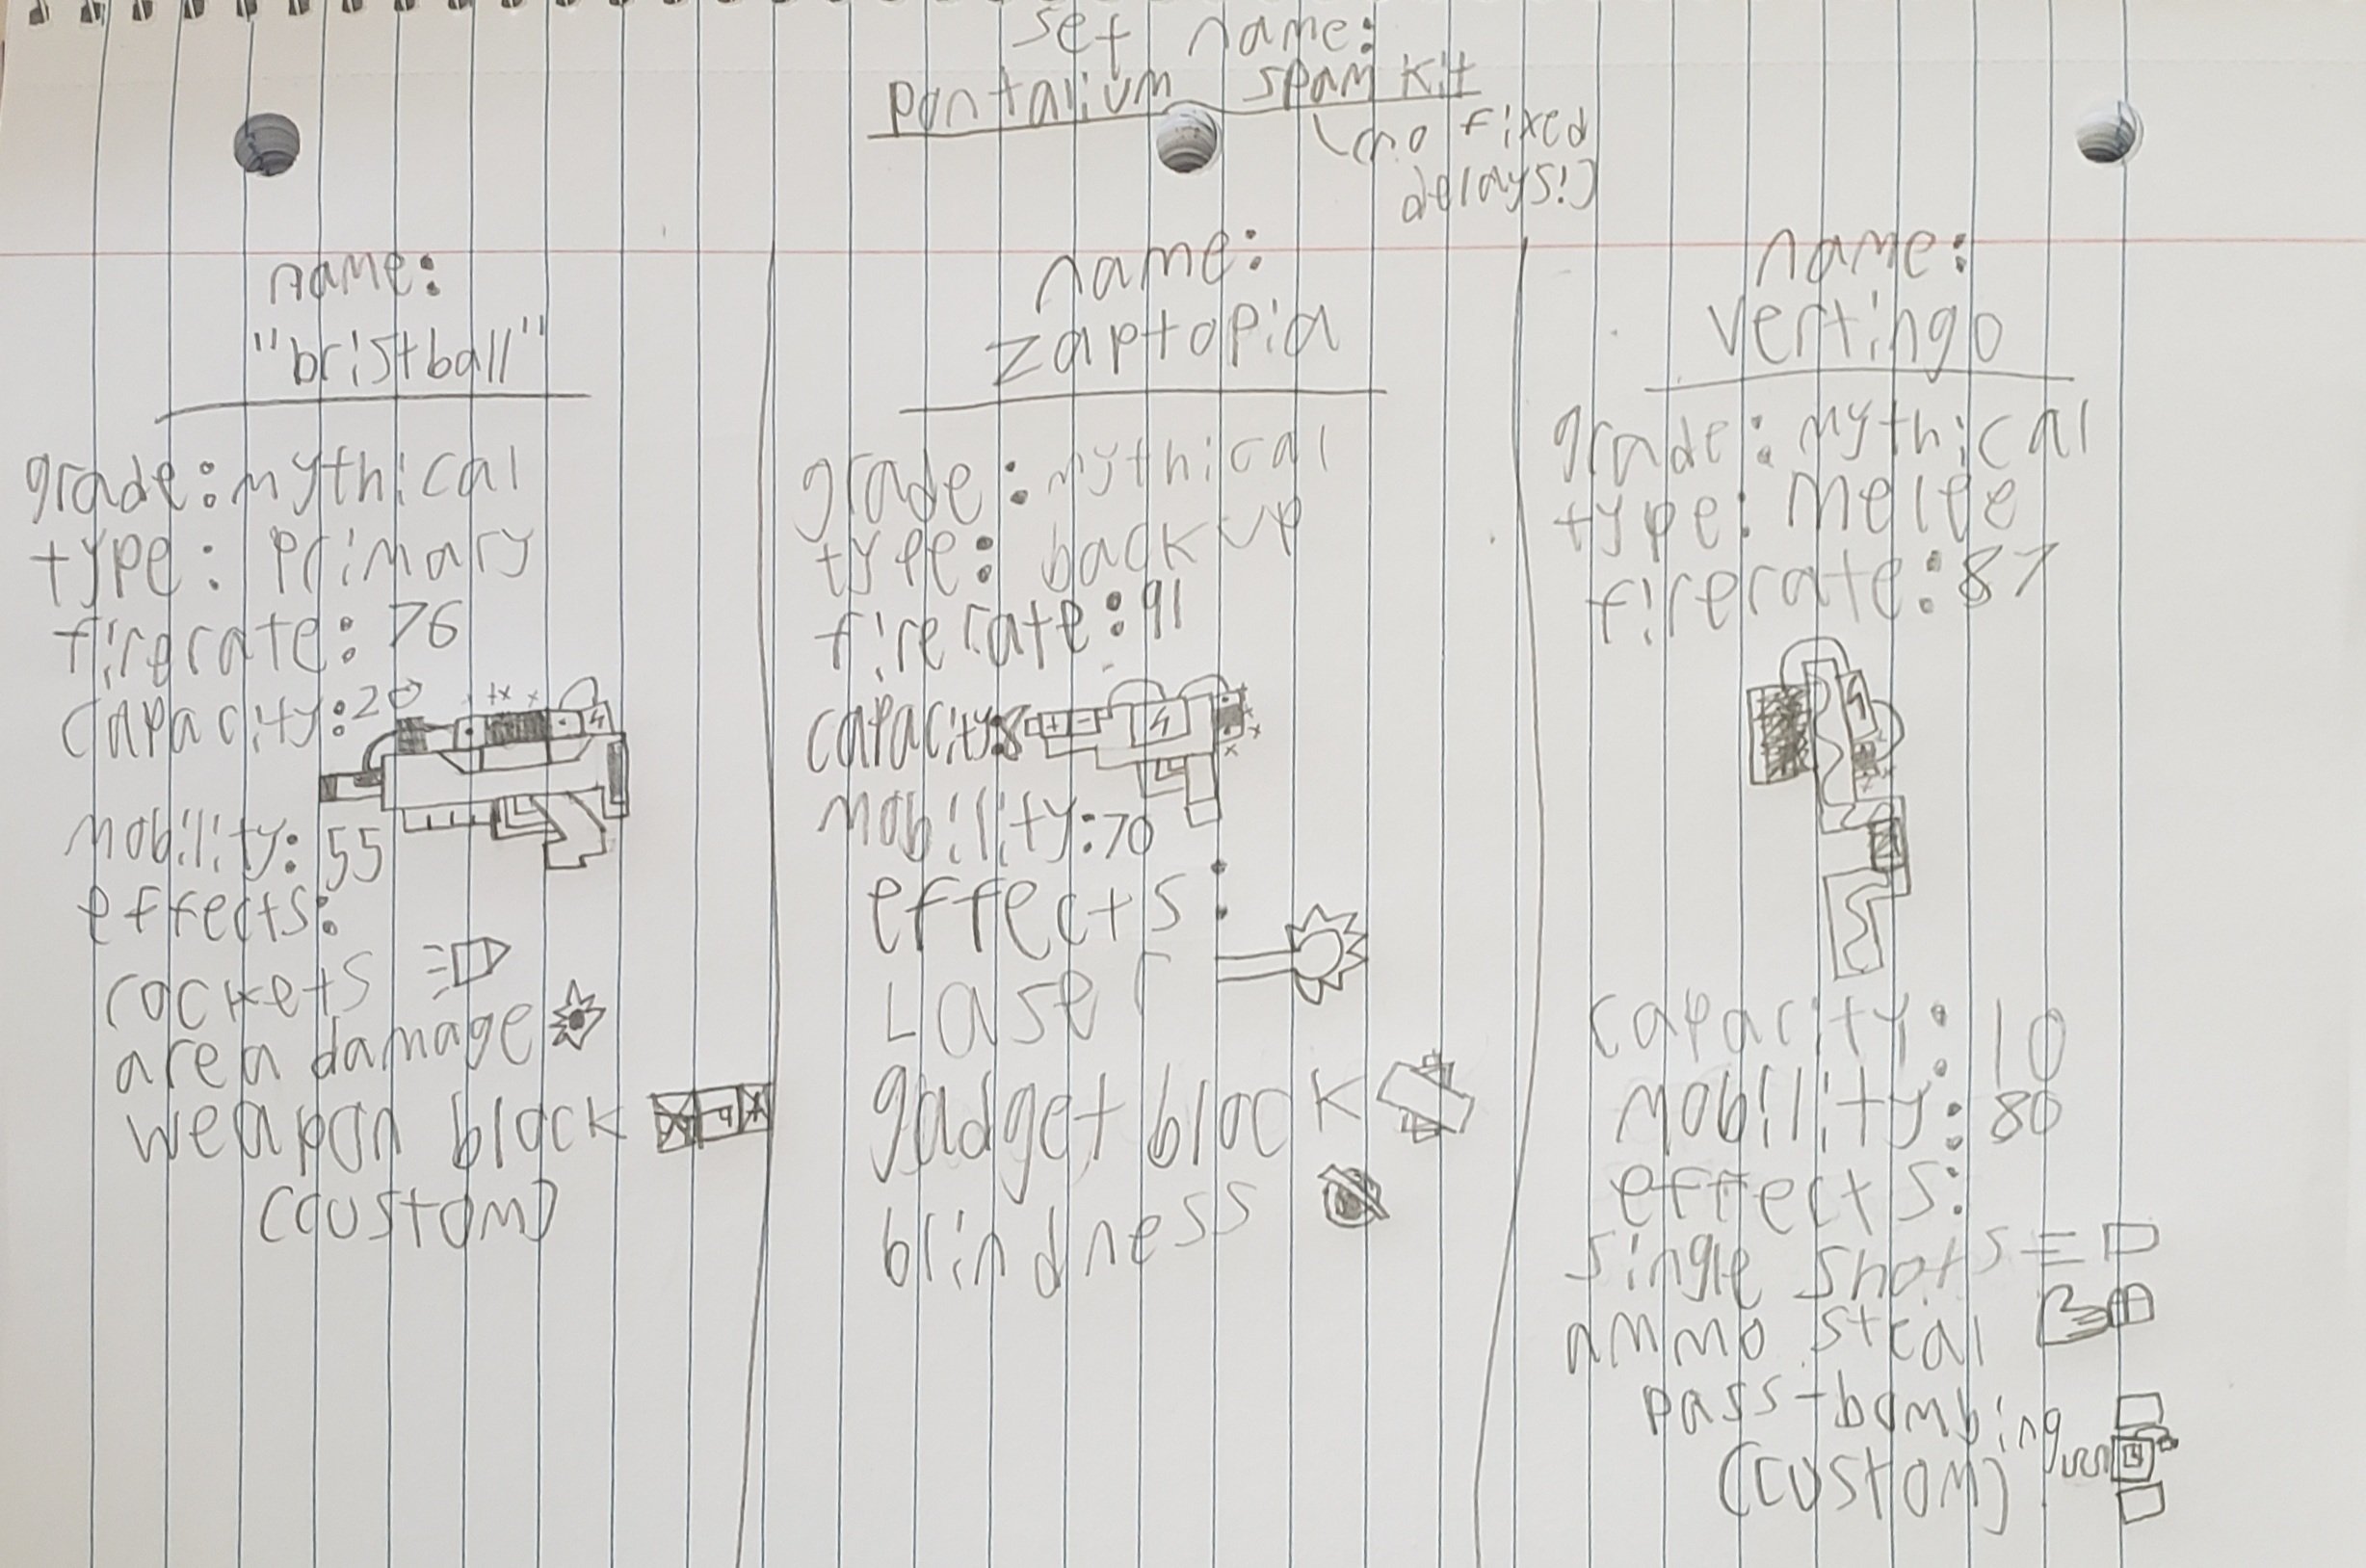 set name:
pontalium spam kit
(no fixed
delays!)
name:
"bristball"
grade: mythical
type: primary
firerate: 76
capacity: 20
mobility: 55
effects:
rockets
area damage
weapon block
(custom)
name:
zaptopia
grade: mythical
type: backup
firerate: 91
capacity: 8
mobility: 70
effects:
Laser
gadget block
blindness
name:
vertingo
grade: mythical
type: melee
firerate: 87
capacity: 10
mobility: 80
effects:
single shots
ammo steal
pass-bombing
(custom)